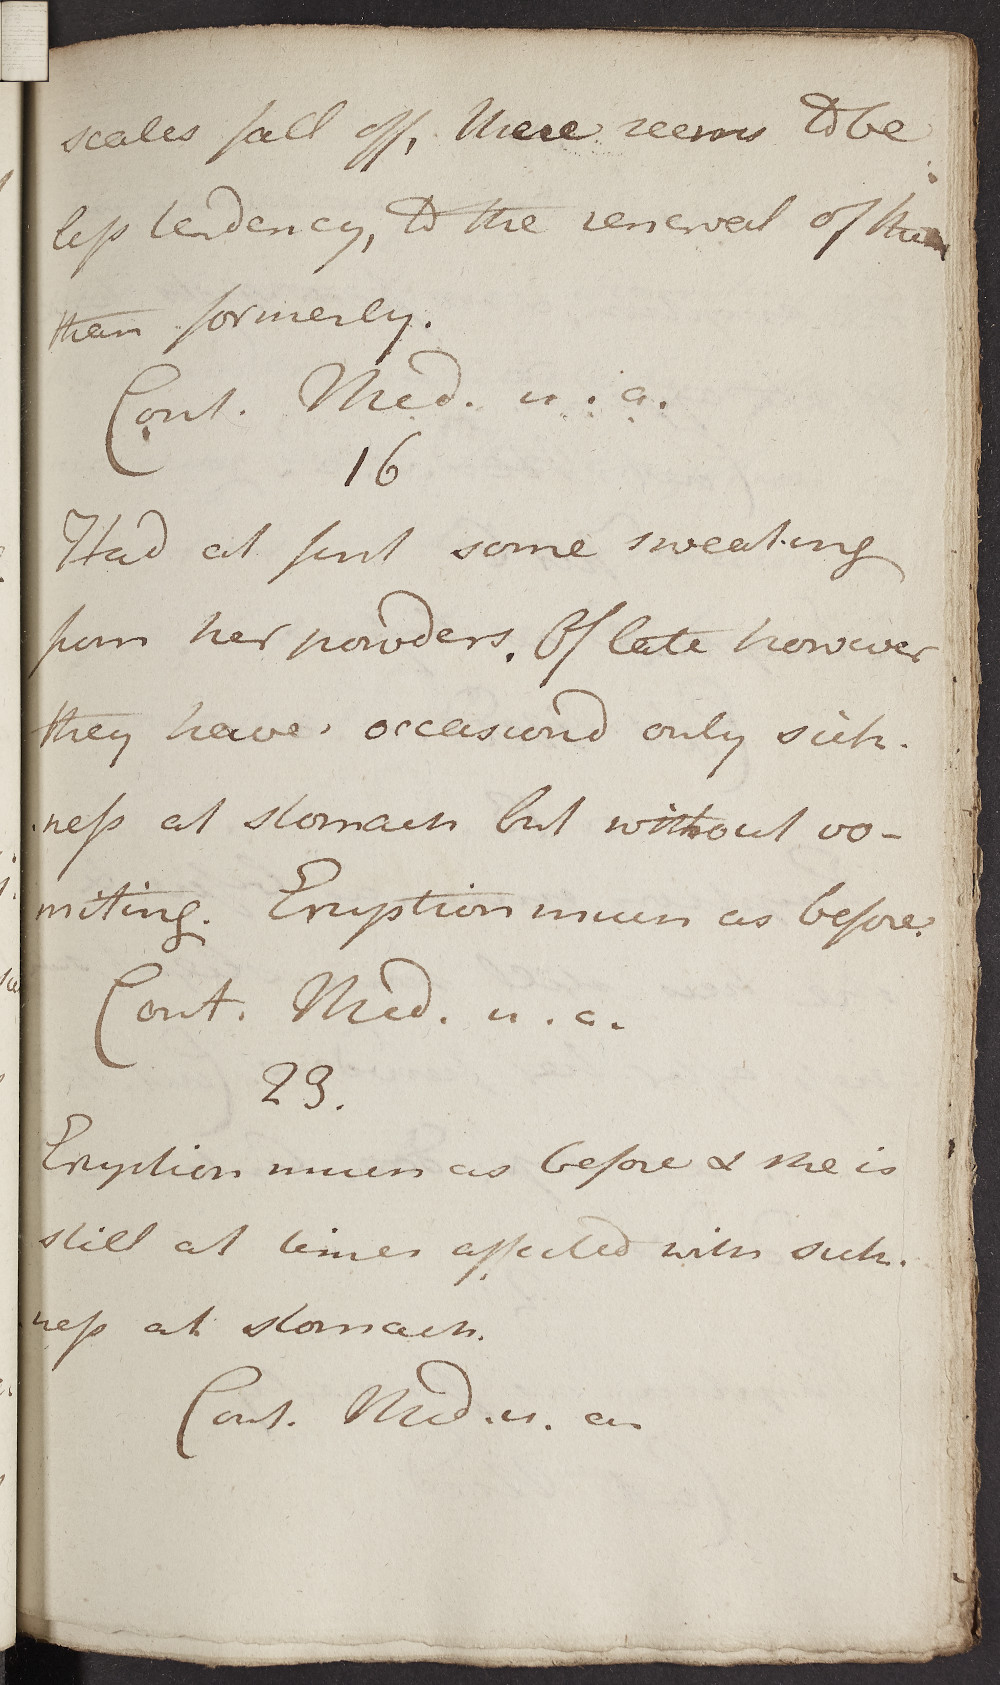 scales fall off, there seems to be
less tendency, to the renewal of them
than formerly.
Cont. Med. u. a.
16
Had at first some sweating
from her powders. Of late however
they have occasiond only sick-
ness at stomach but without vo-
miting. Eruption much as before.
Cont. Med. u. a.
23.
Eruption much as before & she is
still at times affected with sick-
ness at stomach.
Cont. Med. u. a.